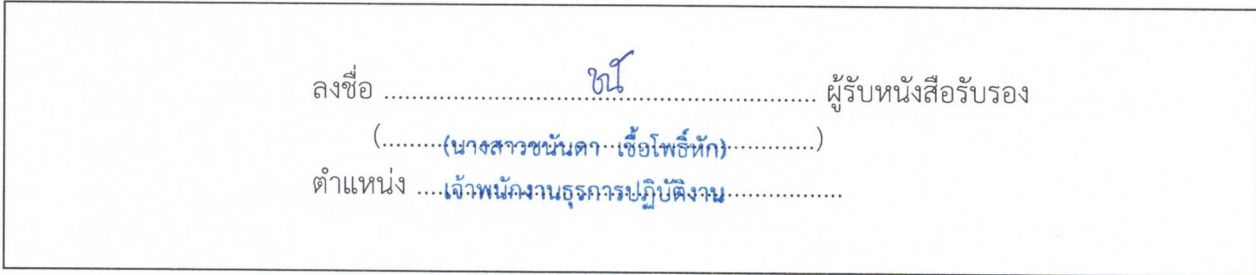 ลงชื่อ ........................ ผู้รับหนังสือรับรอง
(.........(นางสาวชนันดา เชื้อโพธิ์หัก)..............)
ตำแหน่ง ....เจ้าพนักงานธุรการปฏิบัติงาน..................